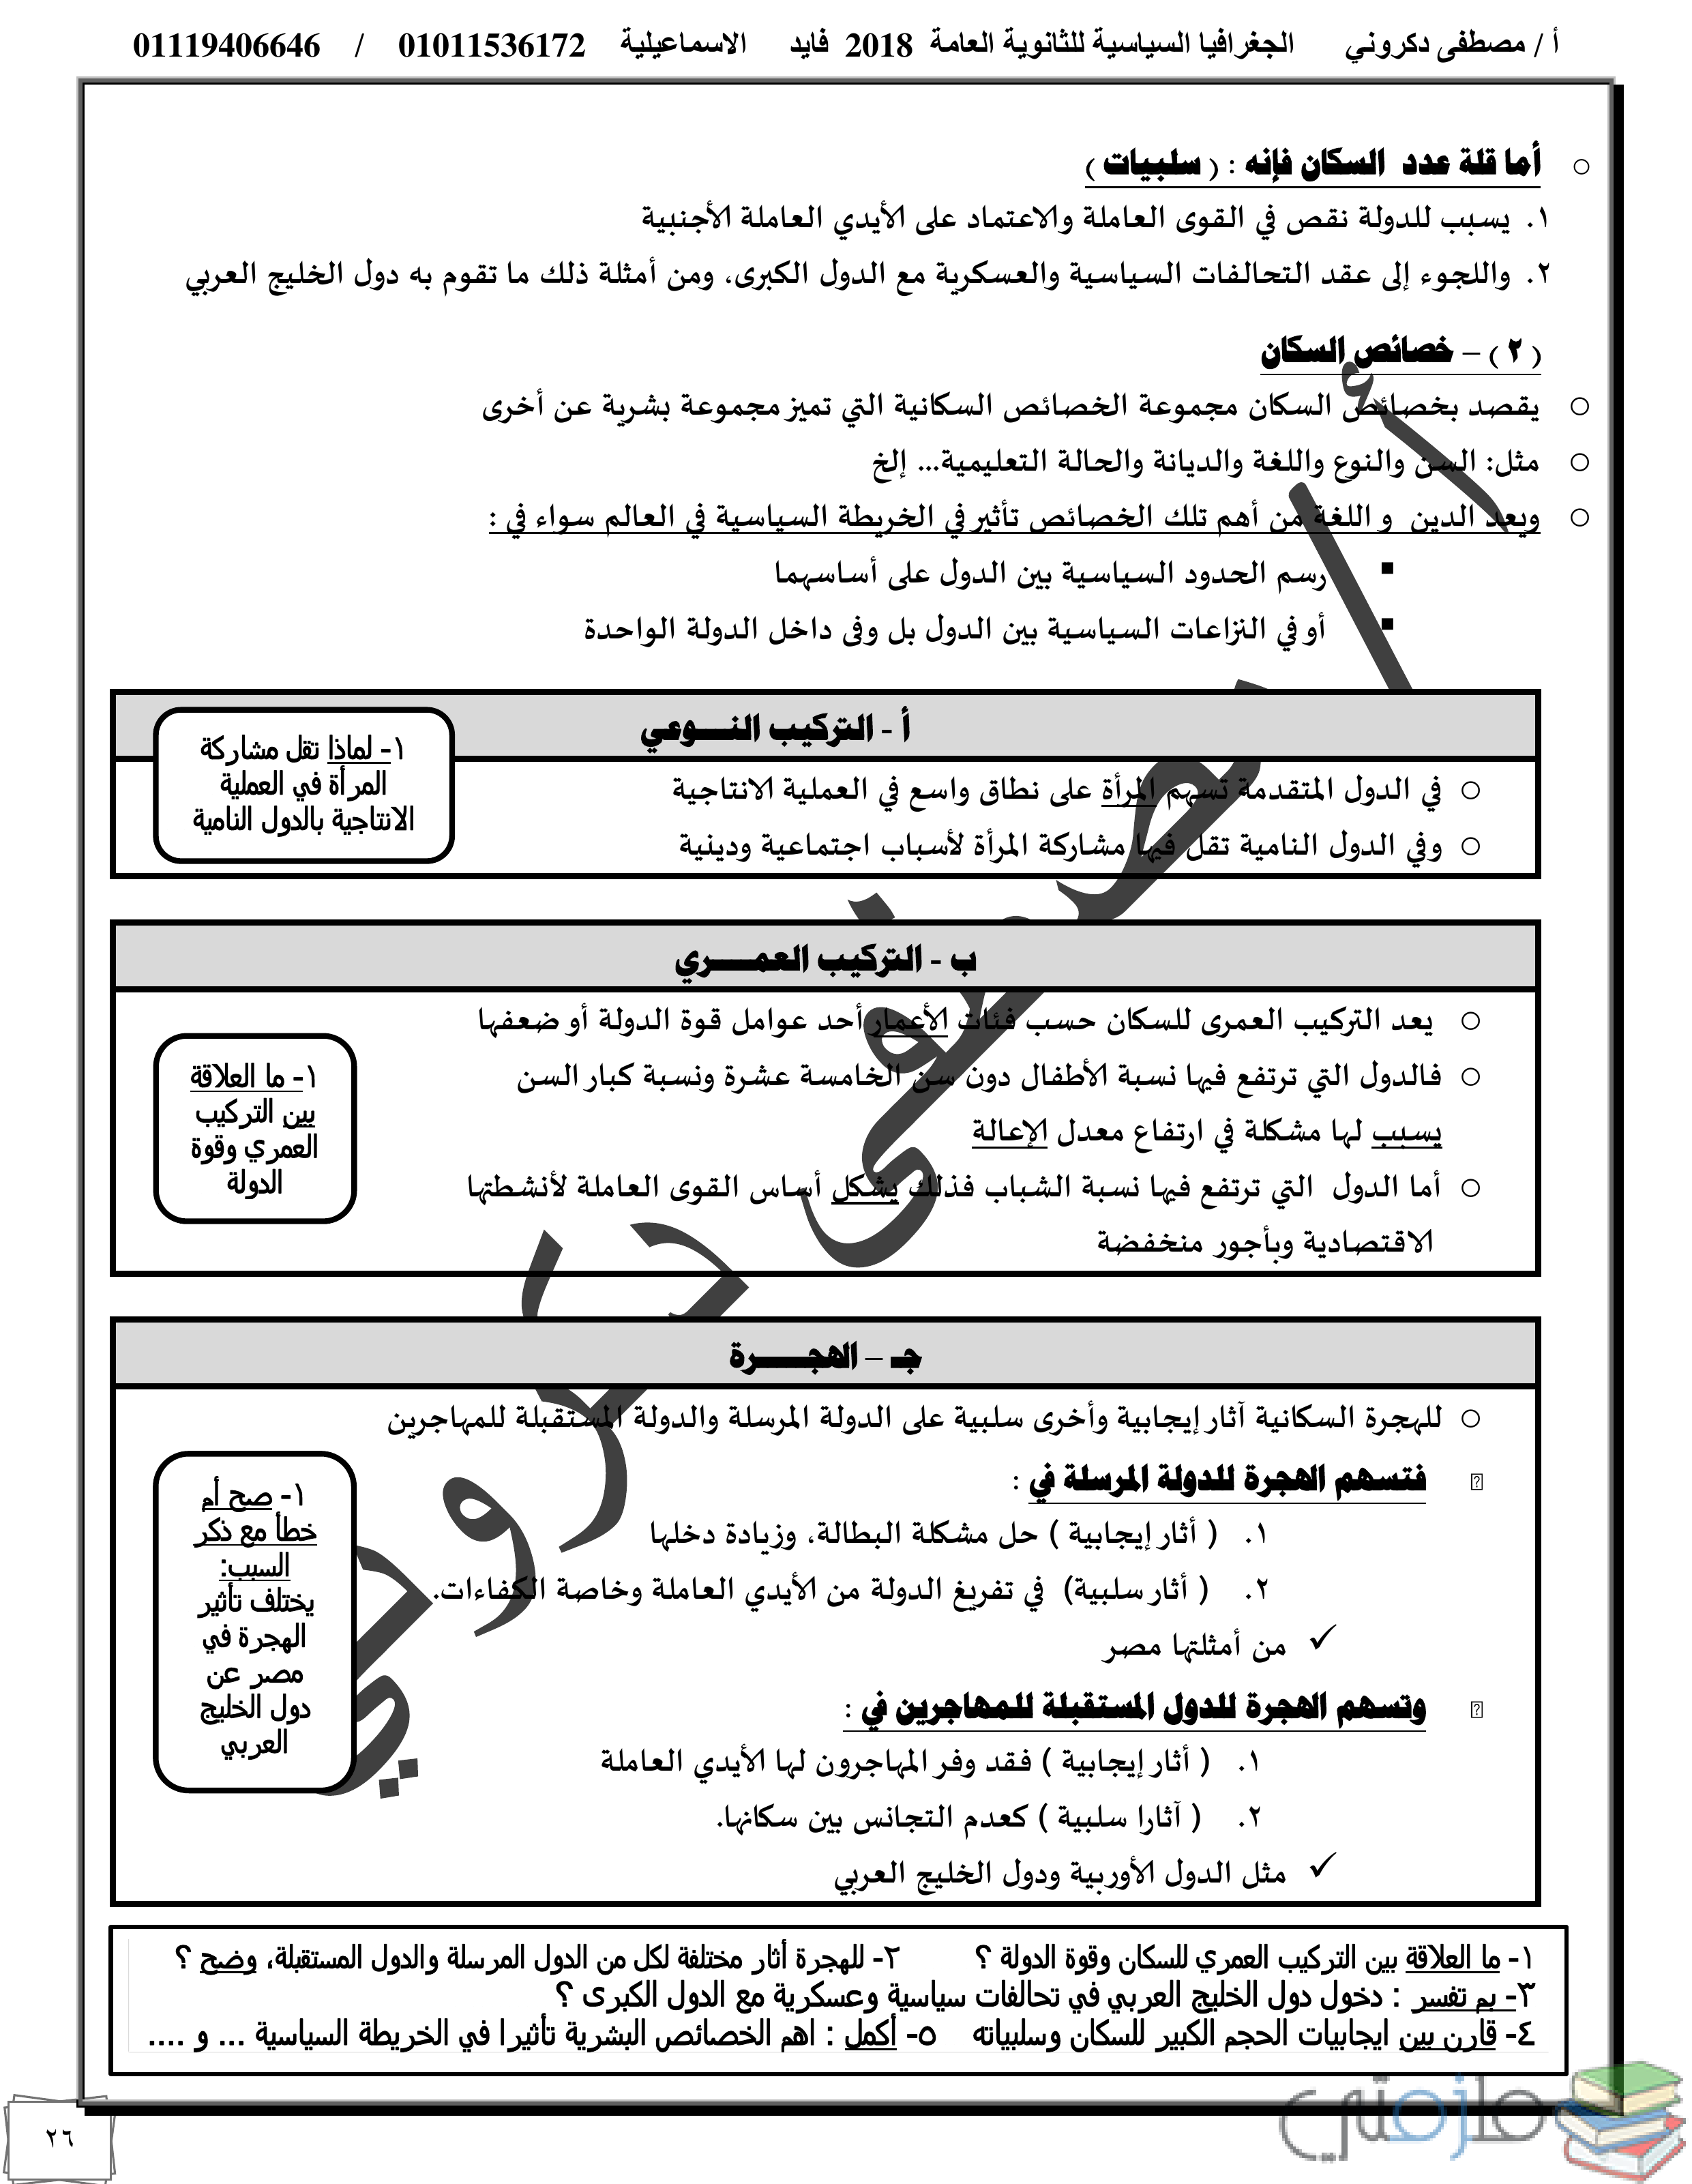 أ / مصطفى دكروني الجغرافيا السياسية للثانوية العامة 2018 فايد الاسماعيلية 01011536172 / 01119406646
أما قلة عدد السكان فإنه : ( سلبيات )
١. يسبب للدولة نقص في القوى العاملة والاعتماد على الأيدي العاملة الأجنبية
٢. واللجوء إلى عقد التحالفات السياسية والعسكرية مع الدول الكبرى، ومن أمثلة ذلك ما تقوم به دول الخليج العربي
( ٢ ) – خصائص السكان
يقصد بخصائص السكان مجموعة الخصائص السكانية التي تميز مجموعة بشرية عن أخرى
مثل: السن والنوع واللغة والديانة والحالة التعليمية... إلخ
ويعد الدين و اللغة من أهم تلك الخصائص تأثير في الخريطة السياسية في العالم سواء في :
رسم الحدود السياسية بين الدول على أساسهما
أو في النزاعات السياسية بين الدول بل وفى داخل الدولة الواحدة
أ - التركيب النـــوعي
في الدول المتقدمة تسهم المرأة على نطاق واسع في العملية الانتاجية
وفي الدول النامية تقل فيها مشاركة المرأة لأسباب اجتماعية ودينية
١- لماذا تقل مشاركة
المرأة في العملية
الانتاجية بالدول النامية
ب - التركيب العمـــري
يعد التركيب العمرى للسكان حسب فئات الأعمار أحد عوامل قوة الدولة أو ضعفها
فالدول التي ترتفع فيها نسبة الأطفال دون سن الخامسة عشرة ونسبة كبار السن
يسبب لها مشكلة في ارتفاع معدل الإعالة
أما الدول التي ترتفع فيها نسبة الشباب فذلك يشكل أساس القوى العاملة لأنشطتها
الاقتصادية وبأجور منخفضة
١- ما العلاقة
بين التركيب
العمري وقوة
الدولة
جـ – الهجـــرة
للهجرة السكانية آثار إيجابية وأخرى سلبية على الدولة المرسلة والدولة المستقبلة للمهاجرين
فتسهم الهجرة للدولة المرسلة في :
١. ( أثار إيجابية ) حل مشكلة البطالة، وزيادة دخلها
٢. ( أثار سلبية) في تفريغ الدولة من الأيدي العاملة وخاصة الكفاءات.
✓ من أمثلتها مصر
وتسهم الهجرة للدول المستقبلة للمهاجرين في :
١. ( أثار إيجابية ) فقد وفر المهاجرون لها الأيدي العاملة
٢. ( آثارا سلبية ) كعدم التجانس بين سكانها.
✓ مثل الدول الأوربية ودول الخليج العربي
١- صح أم
خطأ مع ذكر
السبب:
يختلف تأثير
الهجرة في
مصر عن
دول الخليج
العربي
١- ما العلاقة بين التركيب العمري للسكان وقوة الدولة ؟ ٢- للهجرة أثار مختلفة لكل من الدول المرسلة والدول المستقبلة، وضح ؟
٣- بم تفسر : دخول دول الخليج العربي في تحالفات سياسية وعسكرية مع الدول الكبرى ؟
٤- قارن بين ايجابيات الحجم الكبير للسكان وسلبياته ٥- أكمل : اهم الخصائص البشرية تأثيرا في الخريطة السياسية ... و ....
أ / مصطفى دكروني
ملزمتي
٢٦